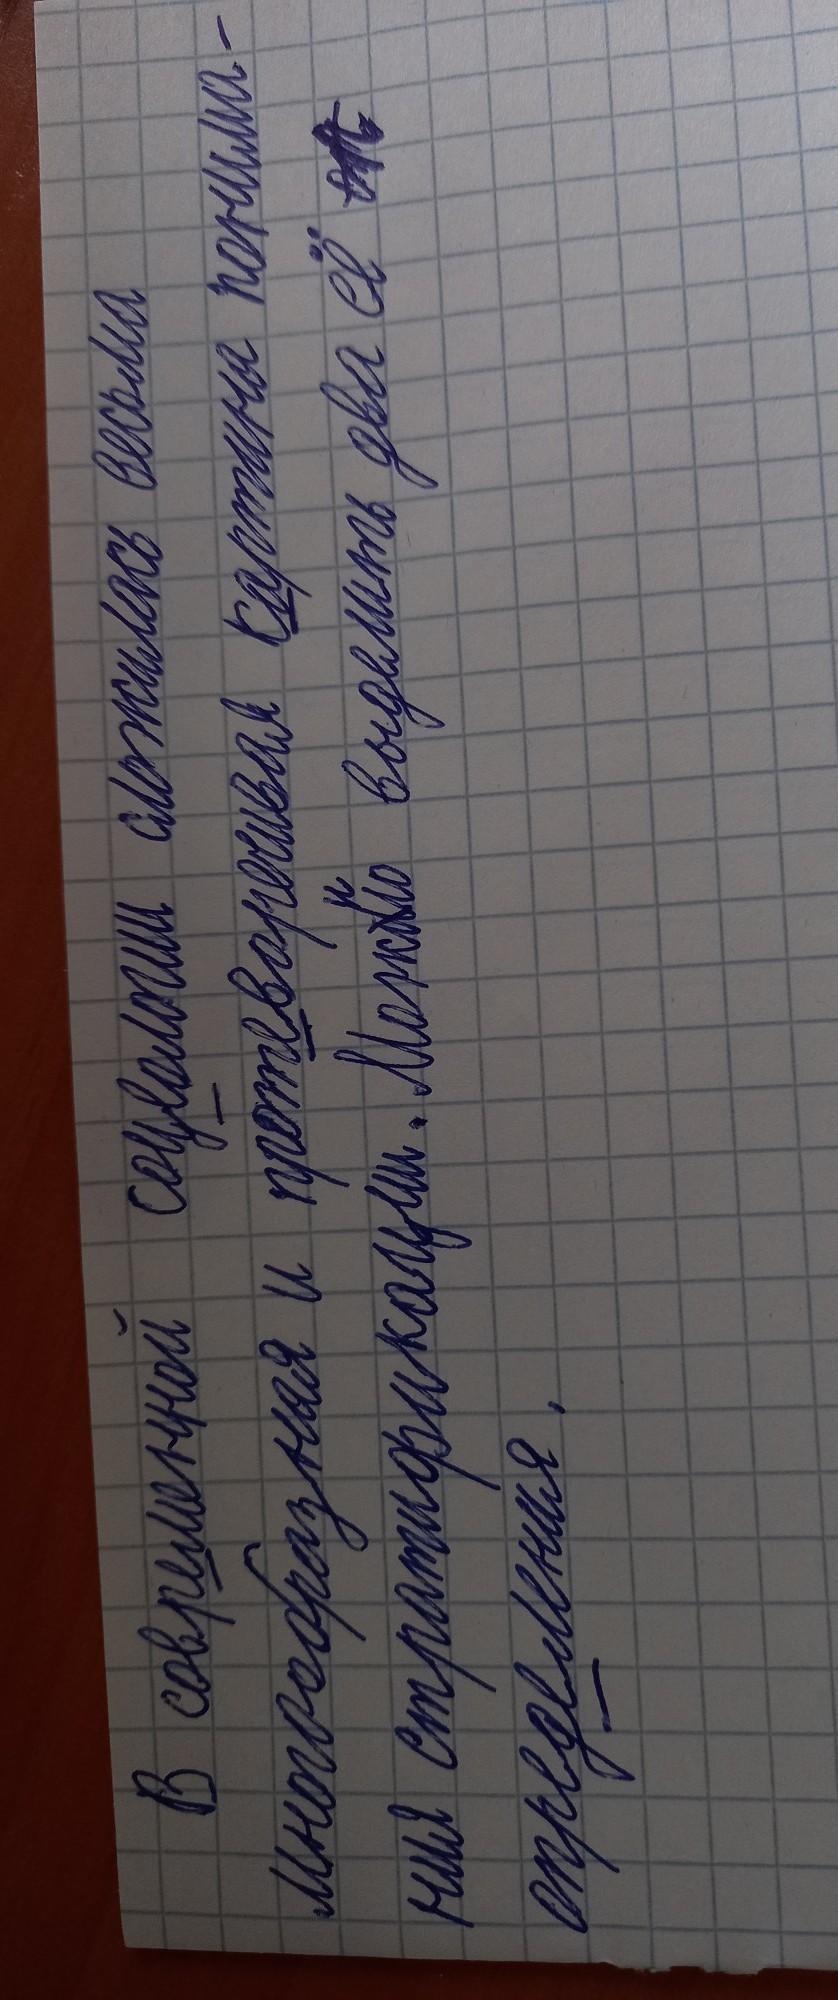 В современной социологии сложилась весьма
многообразная и противоречивая картина понима-
ния стратификации. Можно выделить два её
определения.